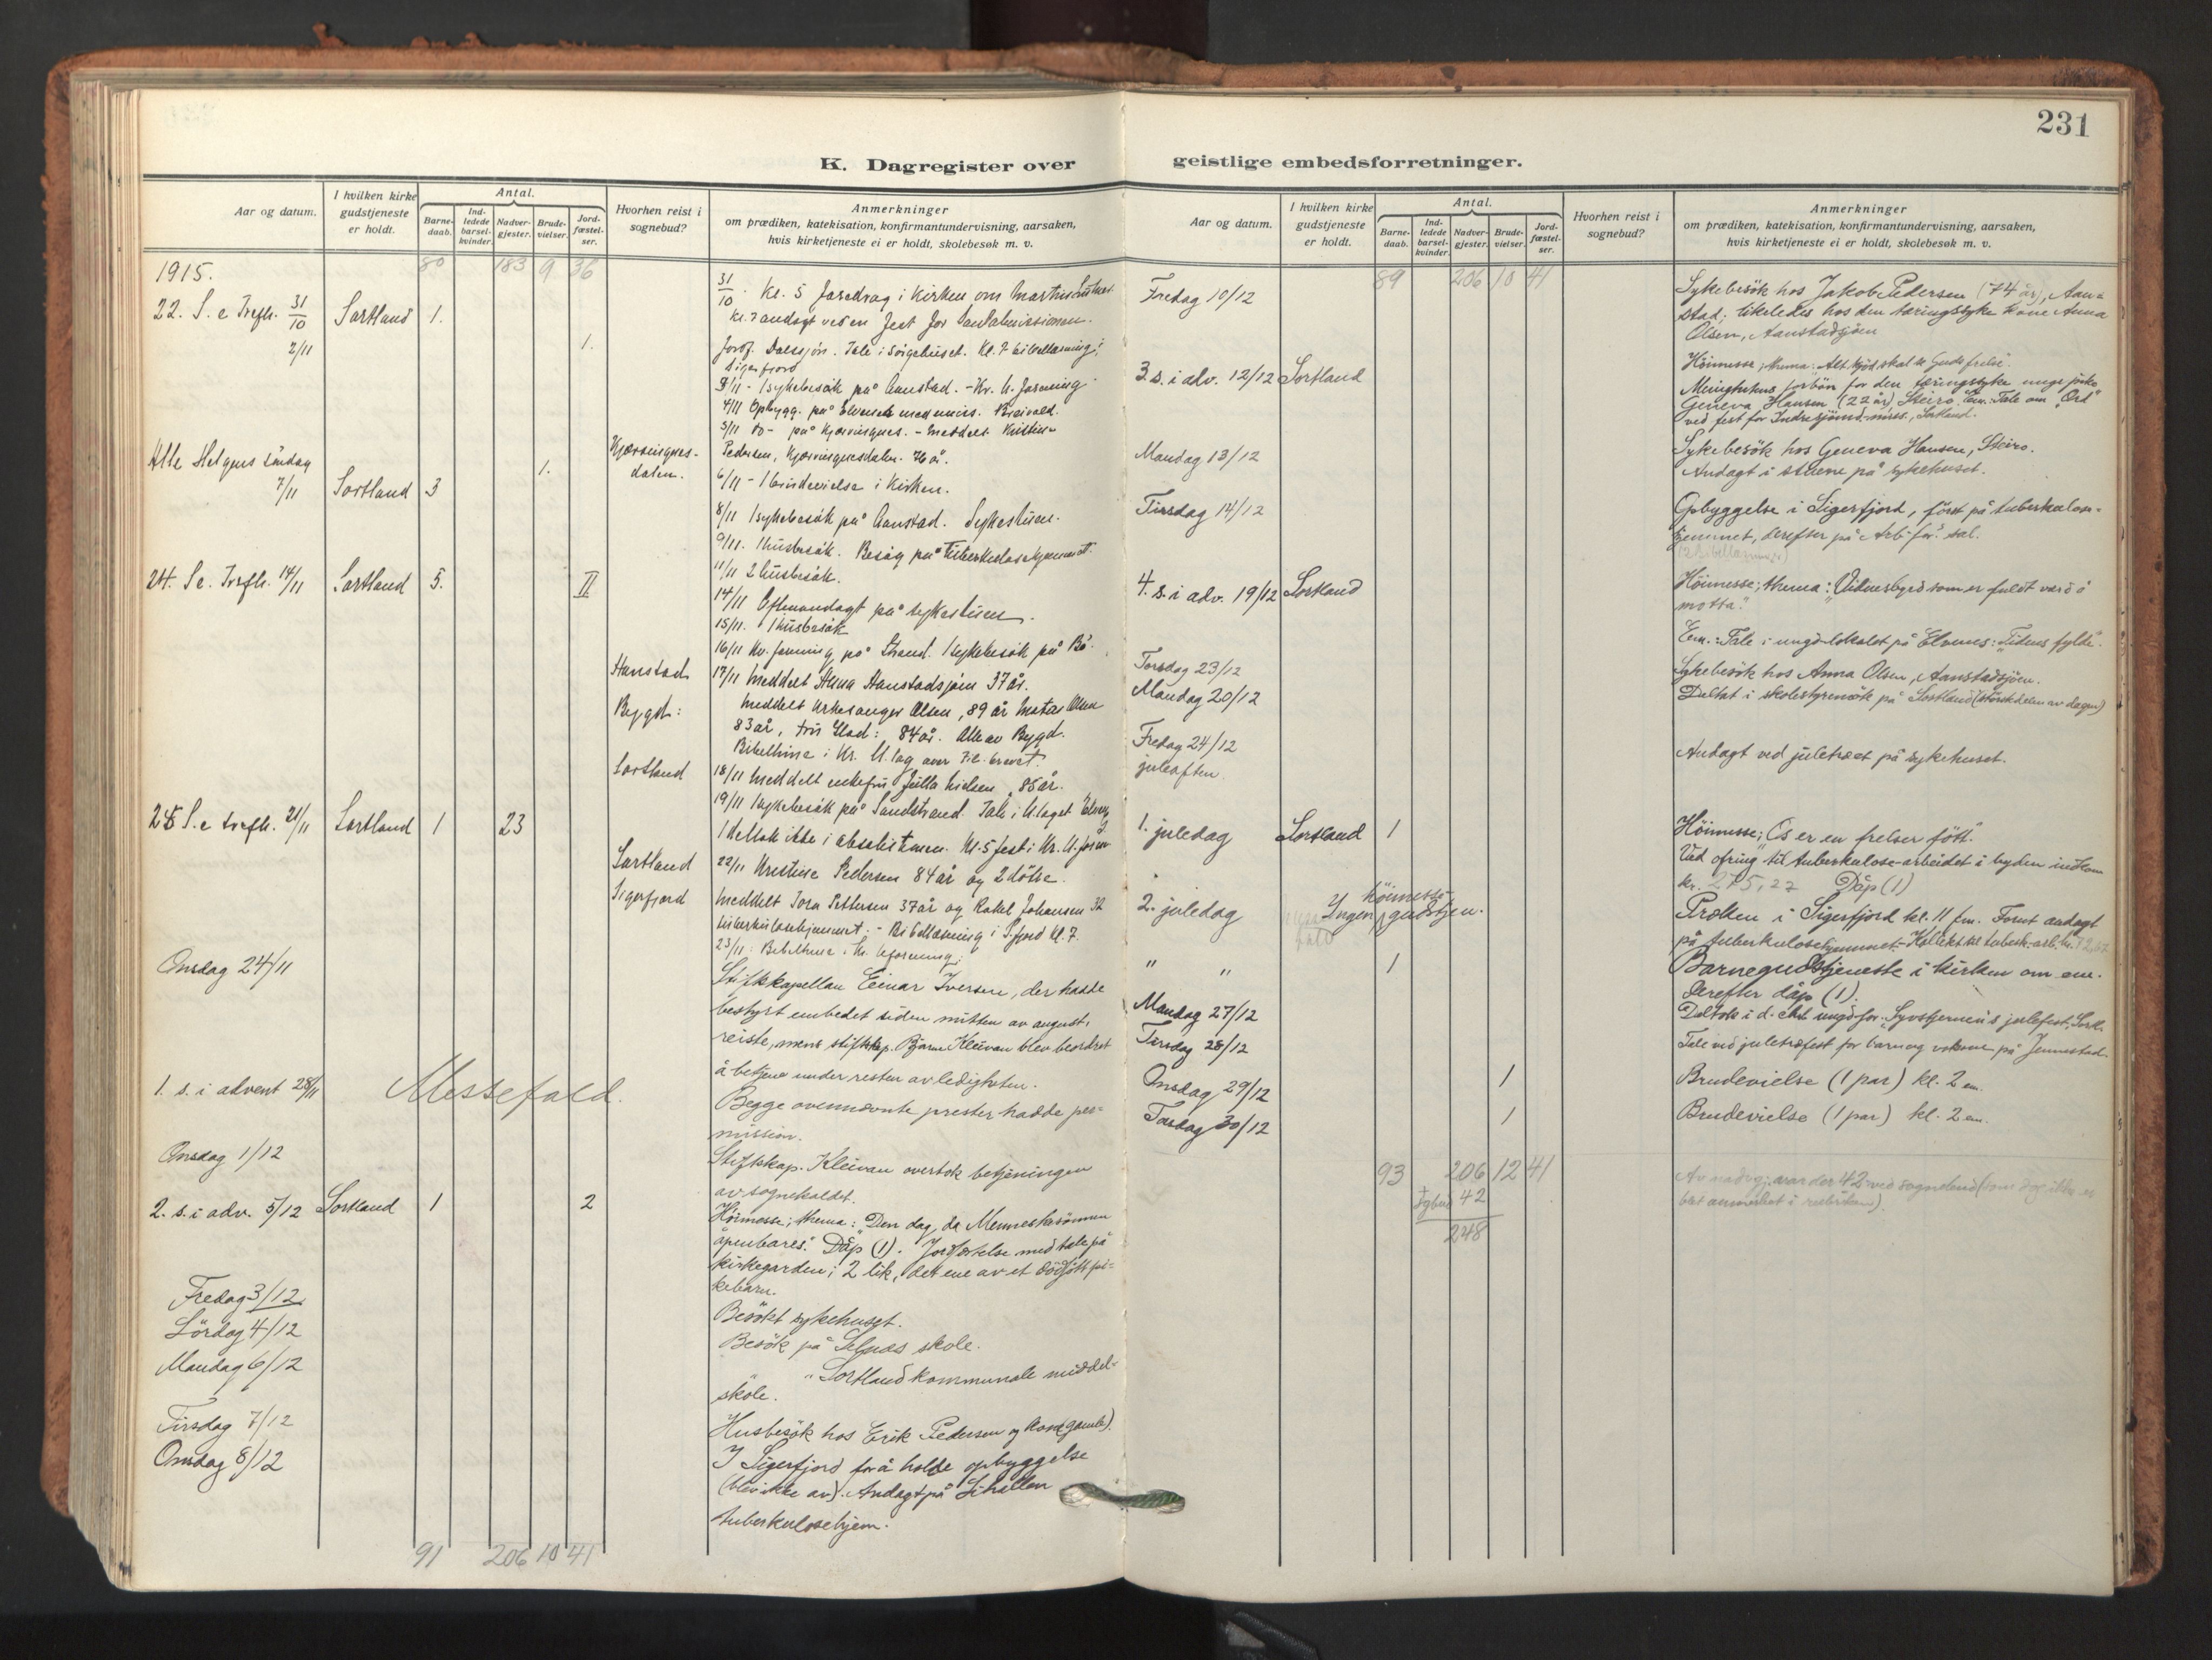 231
K. Dagregister over
geistlige embedsforretninger.
Aar og datum.
I hvilken kirke gudstjeneste er holdt.
Antal.
Barne-daab.
Ind-ledede barsel-kvinder.
Nadver-gjester.
Brude-vielser.
Jord-fæstel-ser.
Hvorhen reist i sognebud?
Anmerkninger
om prædiken, katekisation, konfirmantundervisning, aarsaken,
hvis kirketjeneste ei er holdt, skolebesøk m. v.
1915. 80 183 9 36
22. S. e Trefh. 31/10 Sortland 1.
31/10. Kl. 5 foredrag i Kirken om Martin Luther.
Kl. 7 andagt ved en fest for Santalmissionen.
2/11 1.
Jordf. Tale i sörgehuset. Kl. 7 bibellæsning i
Sigerfjord
3/11 - 1 sykebesök på Aanstad. - Kr. U. forening
4/11 Opbygg. på Elvenes med miss. Breivold.
5/11 do - på Kjørringnes. - Meddelt Kristine
Kjørringnes-dalen.
Pedersen, Kjørringnesdalen. 76 år.
6/11 - 1 brudevielse i Kirken. 1.
Alle Helgens Söndag 7/11 Sortland 3
8/11 1 sykebesök på Aanstad. Sykestuen.
9/11. 1 husbesök. Besög på Tuberkulosehjemmet.
11/11 2 husbesök.
24. S e. Trefh. 14/11 Sortland 5. II
14/11 Aftenandagt på sykestuen.
15/11. 1 husbesök
16/11 Kv. forening på Strand. 1 sykebesök på Bö.
Aanstad 17/11 Meddelt Anna Aanstadsjøen 37 år.
Bygd: Meddelt Kirkesanger Olsen, 89 år Olsen
83 år, fru Glad: 84 år. Alle av Bygd.
Bibeltime i Kr. U. lag over Fil. brevet.
Sortland 18/11 Meddelt enkefru Julla Nielsen, 85 år.
19/11 1 sykebesök på Sandstrand. Tale i U. laget Elvenes
25 S. e trefh. 21/11 Sortland 1 23
1 deltok ikke i absolutionen. Kl. 5 fest i Kr. U. foren.
Sortland 22/11 Kristine Pedersen 84 år og 2 døtre.
Sigerfjord Meddelt Tora Pettersen 37 år og Rakel Johansen 32
tuberkulosehjemmet; - Bibellæsning i S.fjord kl. 7.
23/11: Bibeltime i Kr. U forening.
Onsdag 24/11 Stiftskapellan Einar Iversen, der hadde
bestyrt embedet siden mitten av august,
reiste, mens stiftskap. Bjarne Kleivan blev beordret
å betjene under resten av ledigheten.
1. s. i advent 28/11 Messefald.
Begge ovennævnte prester hadde per-
mission.
Onsdag 1/12 Stiftskap. Kleivan overtok betjeningen
av sognekaldet.
2. s. i adv. 5/12 Sortland 1 2
Höimesse; thema: "Den dag, da Menneskesönnen
åpenbares." Dåp (1). Jordfæstelse med tale på
kirkegården; 2 lik, det ene av et dödfött pi-
kebarn.
Fredag 3/12 Besökt sykehuset.
Lördag 4/12 Besök på Selnæs skole.
Mandag 6/12 " Sortland kommunale middel-
skole.
Tirsdag 7/12 Husbesök hos Erik Pedersen og kone (gamle).
Onsdag 8/12 I Sigerfjord for å holde opbyggelse
(blev ikke av). Andagt på
tuberkulosehjem.
91 206 10 41
Aar og datum.
I hvilken kirke gudstjeneste er holdt.
Antal.
Barne-daab.
Ind-ledede barsel-kvinder.
Nadver-gjester.
Brude-vielser.
Jord-fæstel-ser.
Hvorhen reist i sognebud?
Anmerkninger
om prædiken, katekisation, konfirmantundervisning, aarsaken,
hvis kirketjeneste ei er holdt, skolebesøk m. v.
89 206 10 41
Fredag 10/12 Sykebesök hos Jakob Pedersen (74 år), Aan-
stad; likeledes hos den tæringssyke kone Anna
Olsen, Aanstadsjöen
3. s. i adv. 12/12 Sortland
Höimesse; thema: Alt kjöd skal se Guds frelse.
Menighetens forbön for den tæringssyke unge pike
Geneva Hansen (22 år) Steiro. Em.: Tale om "Ord"
ved fest for Indresjömd-miss., Sortland.
Mandag 13/12 Sykebesök hos Geneva Hansen, Steiro.
Andagt i stuene på sykehuset.
Tirsdag 14/12 Opbyggelse i Sigerfjord, först på tuberkulose-
hjemmet, derefter på Arb.før. sal.
4. s. i adv. 19/12 Sortland
Höimesse; thema: "Vidnesbyrd som er fuldt værd å
motta."
Em.: Tale i ungd-lokalet på Elvenes: "Tidens fylde".
Torsdag 23/12 Sykebesök hos Anna Olsen, Aanstadsjöen.
Mandag 20/12 Deltat i skolestyremöte på Sortland (störstedelen av dagen)
Fredag 24/12
juleaften. Andagt ved juletræet på sykehuset.
1. juledag Sortland 1
Höimesse; "Os er en frelser fött".
Ved ofring til tuberkulose-arbeidet i bygden indkom
kr. 275,27 Dåp (1)
2. juledag Ingen höimesse gudstjen.
Præken i Sigerfjord kl. 11 fm. Forut andagt
på tuberkulosehjemmet. - Kollekt til tuberk-arb. kr.
" " 1 Barnegudstjeneste i kirken om em.
Derefter dåp (1).
Mandag 27/12 Deltok i d. chr. ungd-for. "Syvstjernen"s julefest, Sortl.
Tirsdag 28/12 Tale ved juletræfest for barn og voksne på Jennestad.
Onsdag 29/12 1 Brudevielse (1 par) kl. 2 em.
Torsdag 30/12 1 Brudevielse (1 par) kl. 2 em.
93 206 12 41
+ 42
248
Av nadvgj. var der 42 ved sognebud (som dog ikke er
blet anmerket i rubriken).